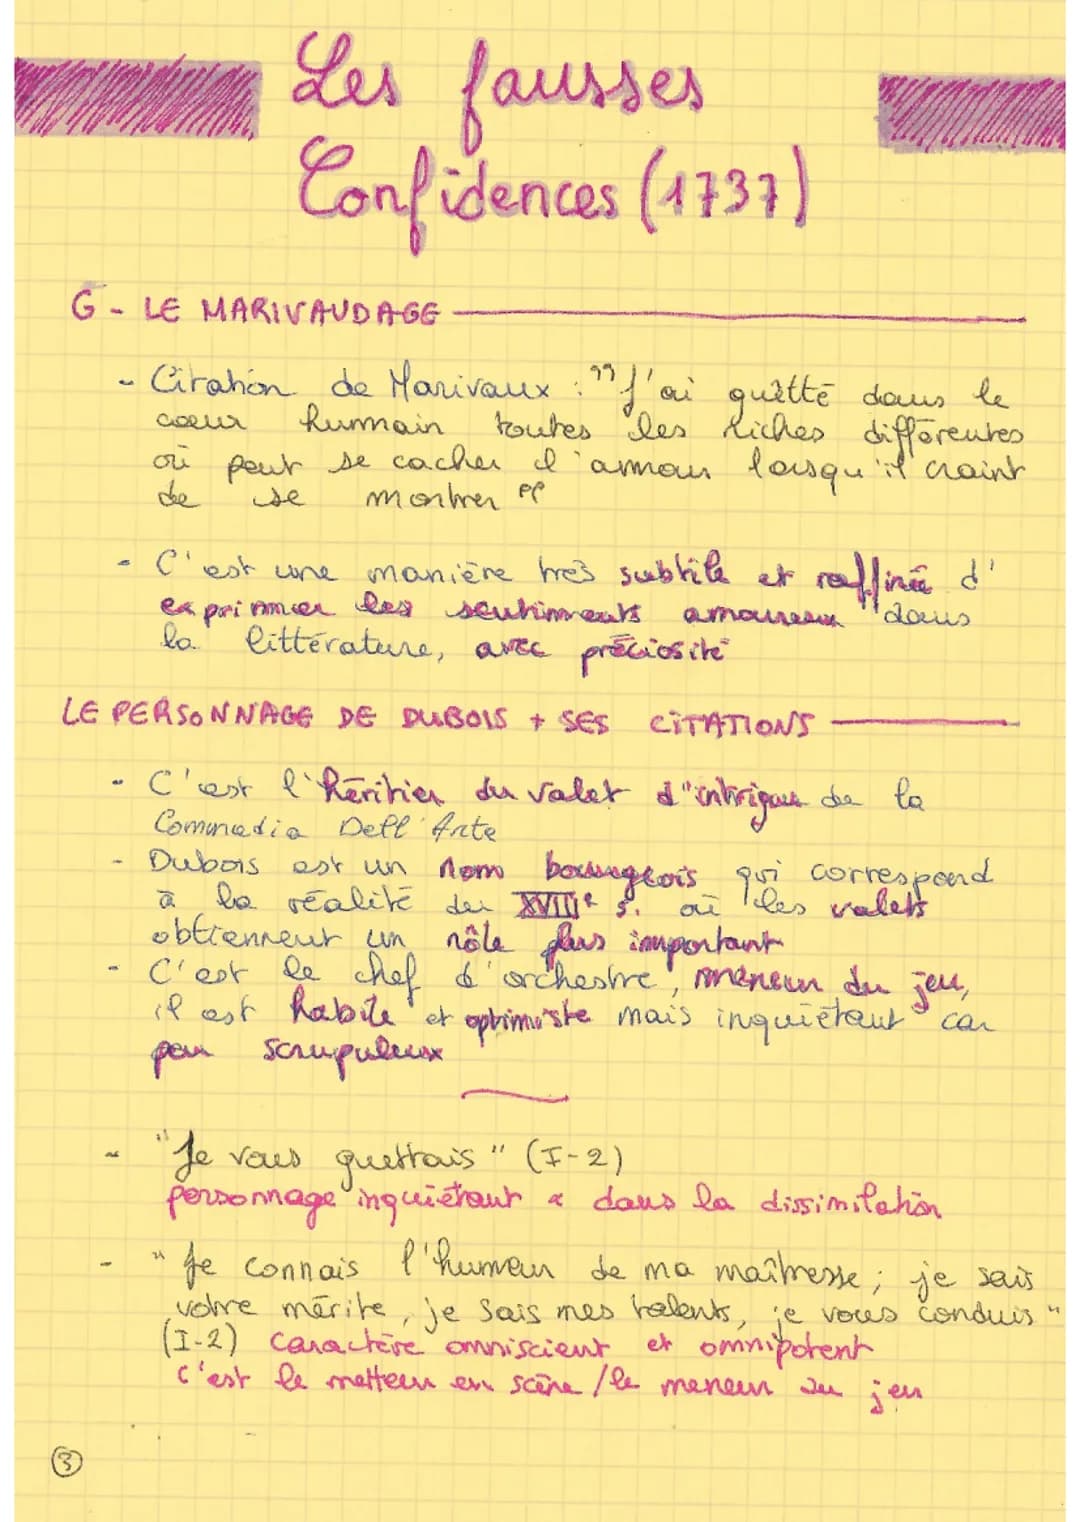 Les fausses
Confidences (1737)
G - LE MARIVAUDAGE
- Citation de Marivaux : "J'ai guetté dans le
cœur humain toutes les niches différentes
où peut se cacher l'amour lorsqu'il craint
de se montrer"
- C'est une manière très subtile et raffinée d'
exprimer les sentiments amoureux dans
la littérature, avec préciosité
LE PERSONNAGE DE DUBOIS + SES CITATIONS
- C'est l'héritier du valet d'intrigue de la
Commedia Dell'Arte
- Dubois est un nom bourgeois qui correspond
à la réalité du XVIIIe s. où les valets
obtiennent un rôle plus important
- C'est le chef d'orchestre, meneur du jeu,
il est habile et optimiste mais inquiétant car
peu scrupuleux
- "Je vous guettais" (I-2)
personnage inquiétant dans la dissimilation
- "Je connais l'humeur de ma maîtresse; je sais
votre mérite, je sais mes talents, je vous conduis"
(I-2) caractère omniscient et omnipotent
c'est le metteur en scène / le meneur du jeu
3